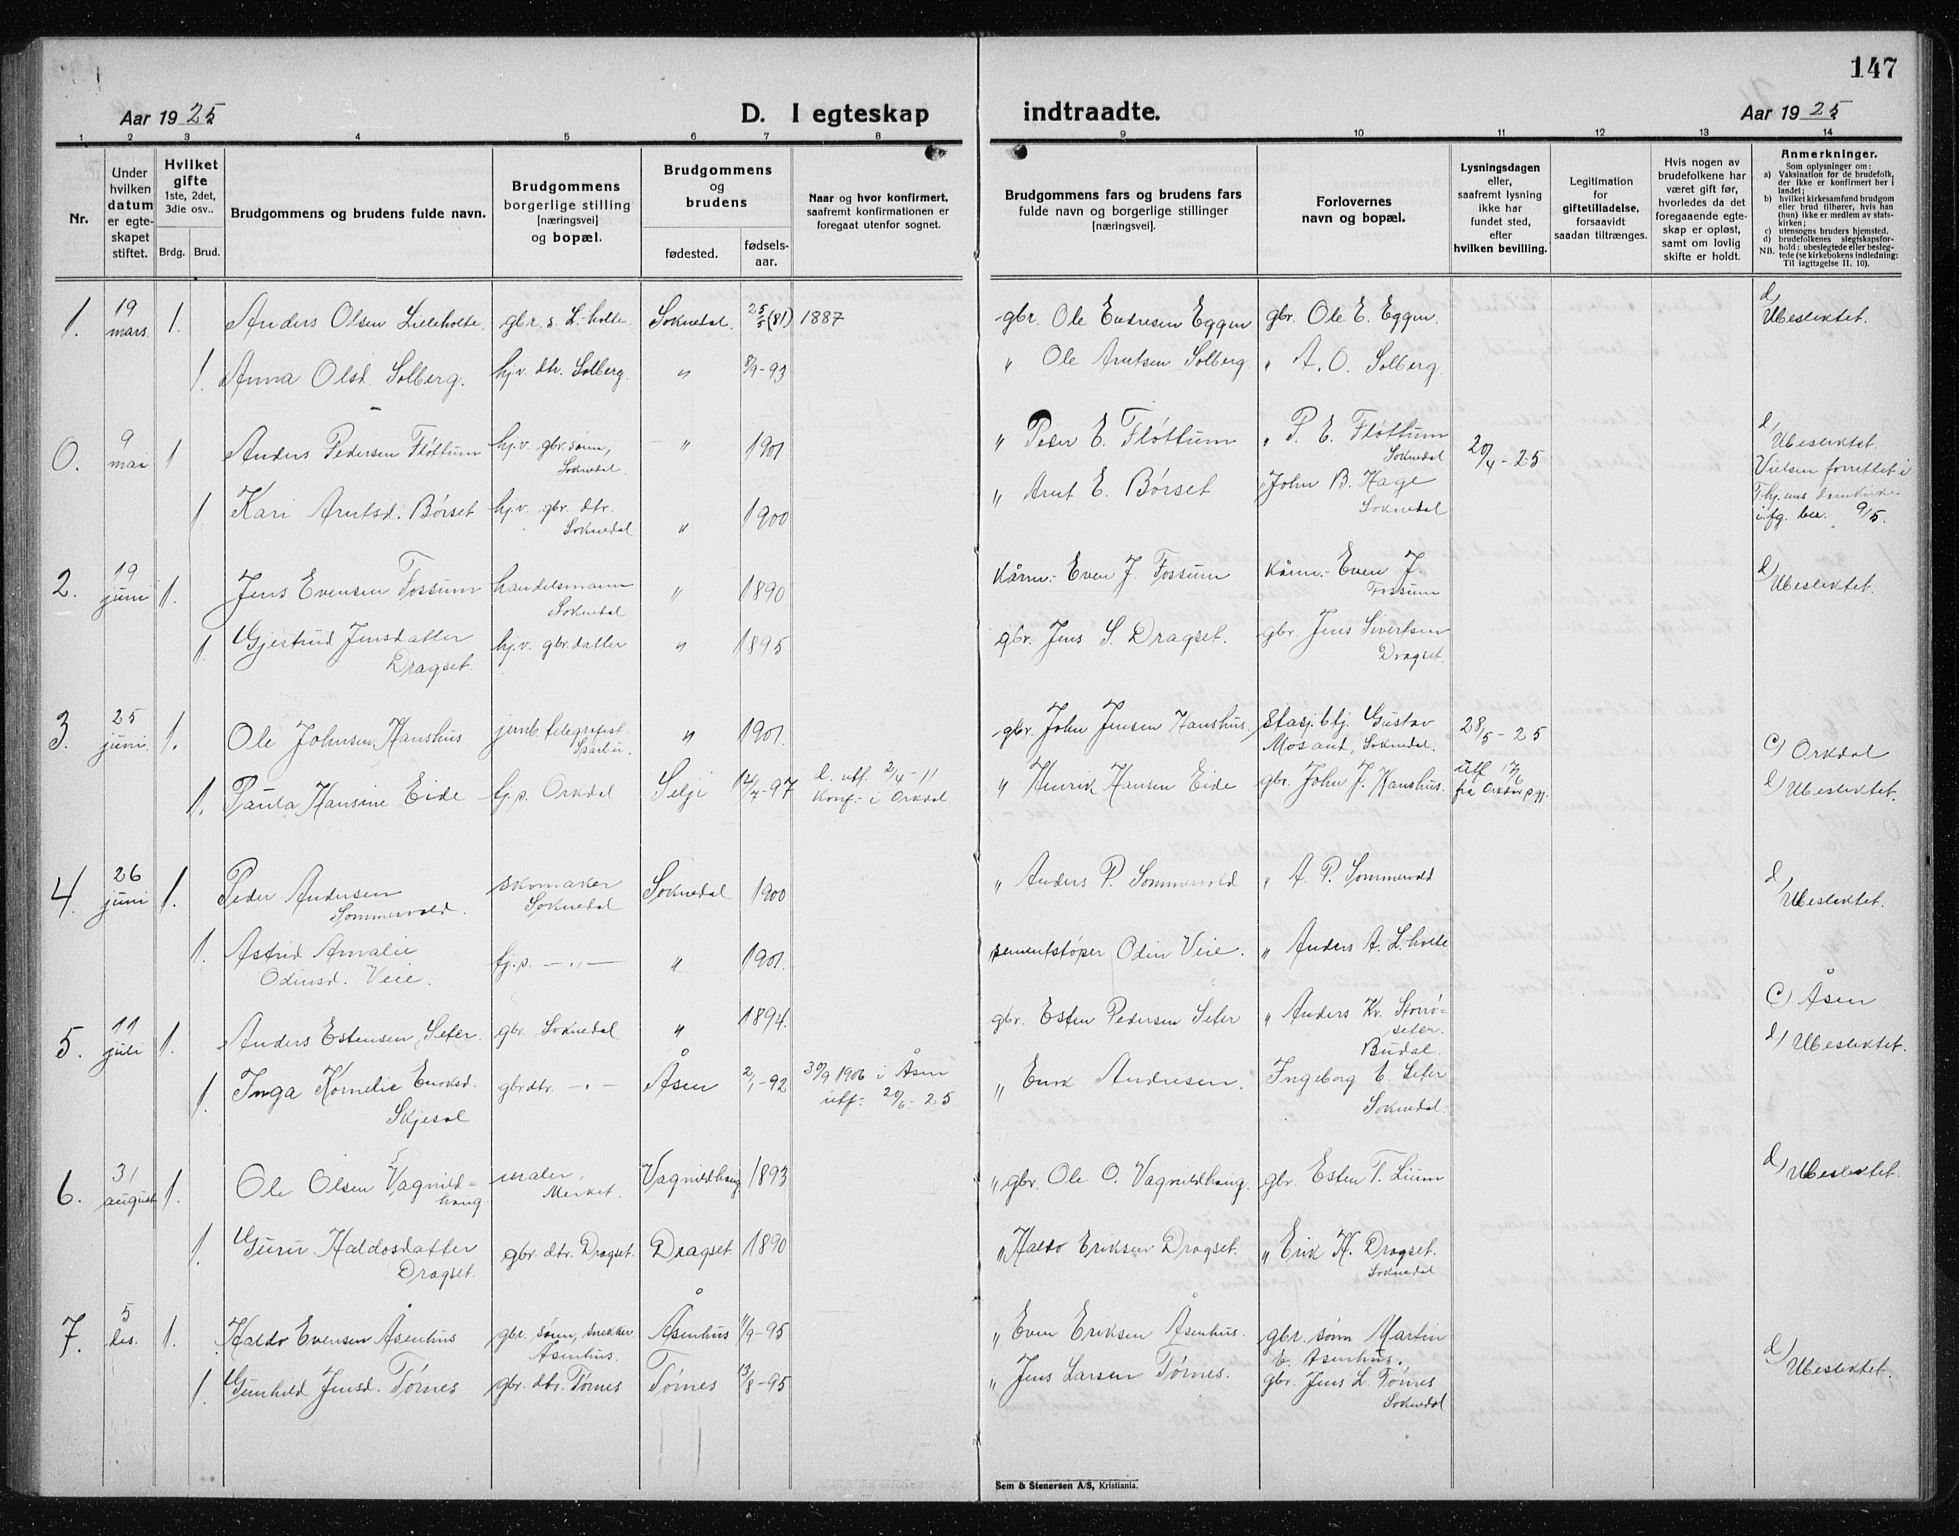 147
Aar 1925
D. I egteskap indtraadte.
Aar 1925
1 2 3 4 5 6 7 8 9 10 11 12 13 14
Nr.
Under
hvilken
datum
er egte-
skapet
stiftet.
Hvilket
gifte
1ste, 2det,
3die osv..
Brdg. Brud.
Brudgommens og brudens fulde navn.
Brudgommens
borgerlige stilling
[næringsvei]
og bopæl.
Brudgommens
og
brudens
fødested.
fødsels-
aar.
Naar og hvor konfirmert,
saafremt konfirmationen er
foregaat utenfor sognet.
Brudgommens fars og brudens fars
fulde navn og borgerlige stillinger
[næringsvei].
Forlovernes
navn og bopæl.
Lysningsdagen
eller,
saafremt lysning
ikke har
fundet sted,
efter
hvilken bevilling.
Legitimation
for
giftetilladelse,
forsaavidt
saadan tiltrænges.
Hvis nogen av
brudefolkene har
været gift før,
hvorledes da det
foregaaende egte-
skap er opløst,
samt om lovlig
skifte er holdt.
Anmerkninger.
Som oplysninger om:
a) Vaksination for de brudefolk,
der ikke er konfirmert her i
landet;
b) hvilket kirkesamfund brudgom
eller brud tilhører, hvis han
(hun) ikke er medlem av stats-
kirken;
c) utensogns bruders hjemsted.
d) brudefolkenes slegtskapsfor-
hold: ubeslegtede eller besleg-
NB. tede (se kirkebokens indledning:
Til iagttagelse II. 10).
1. 19 mars. 1. Anders Olsen Lilleholte. gbr. s. L. holte. Soknedal. 25/5 (81) 1887 gbr. Ole Endresen Eggen gbr. Ole E. Eggen. d/ Ubeslektet.
1. Anna Olsd. Solberg. hj.v. dtr. Solberg. " 8/9-93 " Ole Arntsen Solberg " A. O. Solberg.
0. 9 mai 1 Anders Pedersen Fløttum hj.v. gbr. sønn, Soknedal. " 1901 " Peder E. Fløttum " P. E. Fløttum Soknedal 20/4-25 d/ Ubeslektet
Vielsen forrettet i
1 Kari Arntsd. Børset hj.v. gbr. dtr. Soknedal " 1900 " Arnt E. Børset " John B. Hage Soknedal
9/5.
2. 19 juni 1. Jens Evensen Fossum handelsmann Soknedal " 1890 Kårm.- Even J. Fossum Kårm.- Even J. Fossum d/ Ubeslektet.
1. Gjertrud Jensdatter Dragset. hj.v. gbr. datter " 1895 gbr. Jens S. Dragset. gbr. Jens Sivertsen Dragset.
3. 25 juni. 1. Ole Johnsen Hanshus jernb. telegrafist. " 1901. gbr. John Jensen Hanshus. stasj.btj. Gustav Mosand, Soknedal. 28/5-25 c) Orkdal
1. Paula Hansine Eide fj.p. Orkdal Selje 14/7-97 d. utf. 2/4-11 Konf.- i Orkdal " Henrik Hansen Eide gbr. John J. Hanshus. utf 17/6 fra Orkdal d/ Ubeslektet.
4. 26 juni 1. Peder Andersen Sommervold. skomaker Soknedal Soknedal 1900 " Anders P. Sommervold " A. P. Sommervold d/ Ubeslektet.
1. Astrid Amalie Odinsd. Veie. fj.p. —"— " 1901. sementstøper Odin Veie. " Anders A. L.holte
5. 11 juli 1. Anders Estensen Seter. gbr. Soknedal " 1894. gbr. Esten Pedersen Seter " Anders Kv. Storrø- seter. Budal. c) Åsen
d/ Ubeslektet.
1. Inga Kornelie Eriksd. Skjesol gbr dtr. —"— Åsen 2/1-92 30/9 1906 i Åsen utf.- 20/6-25. " Erik Andresen. Ingeborg E. Seter Soknedal.
6. 31 august 1. Ole Olsen Vagnild- haug. maler, Merket. Vagnildhaug 1893 " gbr. Ole O. Vagnildhaug. gbr. Esten T. Lium d/ Ubeslektet.
1. Guru Haldosdatter Dragset. gbr. dtr. Dragset. Dragset. 1890 " Haldo Eriksen Dragset. " Erik H. Dragset. Soknedal
7. 5 des. 1. Haldo Evensen Åsenhus gbr. sønn, snekker Åsenhus. Åsenhus 11/9-95 " Even Eriksen Åsenhus. gbr. sønn Martin E. Åsenhus.
1. Gunhild Jensd. Tørnes gbr. dtr. Tørnes Tørnes 13/8-95 " Jens Larsen Tørnes. gbr. Jens L. Tørnes Soknedal d/ Ubeslektet.
Sem & Stenersen A/S, Kristiania.